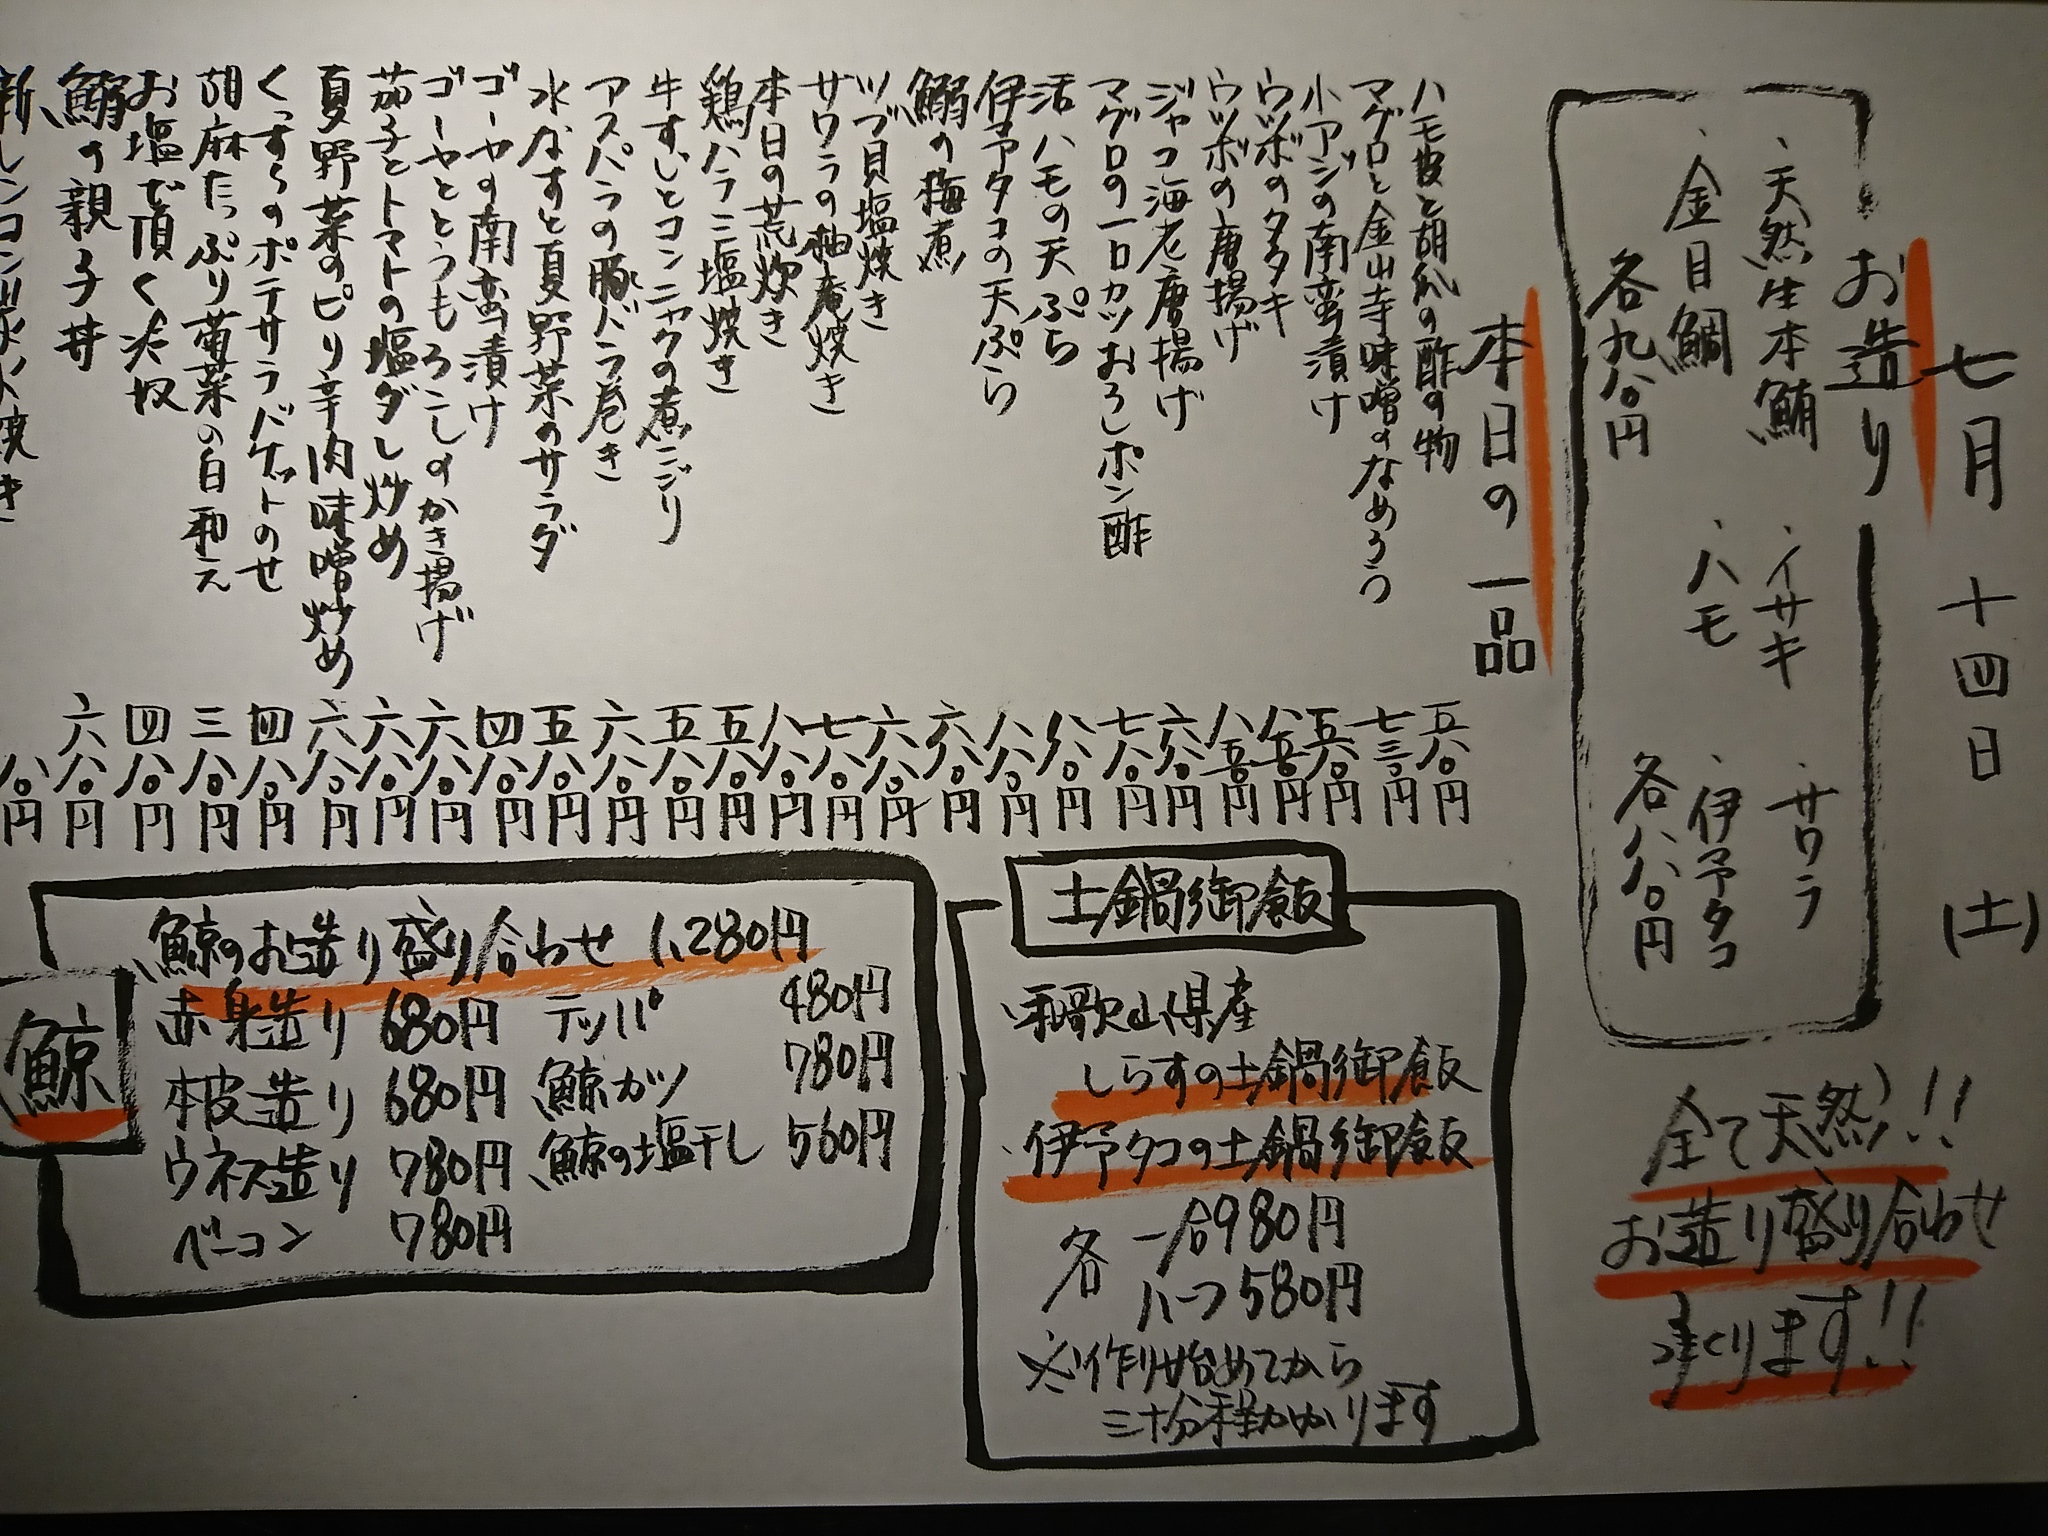 七月 十四日 (土)
お造り
・天然生本鮪 ・イサキ ・サワラ
・金目鯛 ・ハモ ・伊予タコ
各九八〇円 各八八〇円
全て天然!!
お造り盛り合わせ
承ります!!
本日の一品
ハモ皮と胡瓜の酢の物 五八〇円
マグロと金山寺味噌のなめろう 七三〇円
小アジの南蛮漬け 五八〇円
ウツボのタタキ 八五〇円
ウツボの唐揚げ 八五〇円
ジャコ海老唐揚げ 六八〇円
マグロの一口カツおろしポン酢 七八〇円
活ハモの天ぷら 八八〇円
伊予タコの天ぷら 八八〇円
鰯の梅煮 六八〇円
ツブ貝塩焼き 六八〇円
サワラの柚庵焼き 七八〇円
本日の荒炊き 八八〇円
鶏ハラミ塩焼き 五八〇円
牛すじとコンニャクの煮こごり 五八〇円
アスパラの豚バラ巻き 六八〇円
水なすと夏野菜のサラダ 五八〇円
ゴーヤの南蛮漬け 四八〇円
ゴーヤととうもろこしのかき揚げ 六八〇円
茄子とトマトの塩ダレ炒め 六八〇円
夏野菜のピリ辛肉味噌炒め 六八〇円
ポテサラバゲットのせ 四八〇円
胡麻たっぷり菊菜の白和え 三八〇円
お塩で頂く冷奴 四八〇円
鰯の親子丼 六八〇円
新レンコン 焼き 八〇円
土鍋御飯
・和歌山県産
しらすの土鍋御飯
・伊予タコの土鍋御飯
各 一合980円
ハーフ580円
※作り始めてから
三十分程かかります
鯨
鯨のお造り盛り合わせ 1,280円
赤身造り 680円 テッパ 480円
本皮造り 680円 鯨カツ 780円
ウネス造り 780円 鯨の塩干し 560円
ベーコン 780円